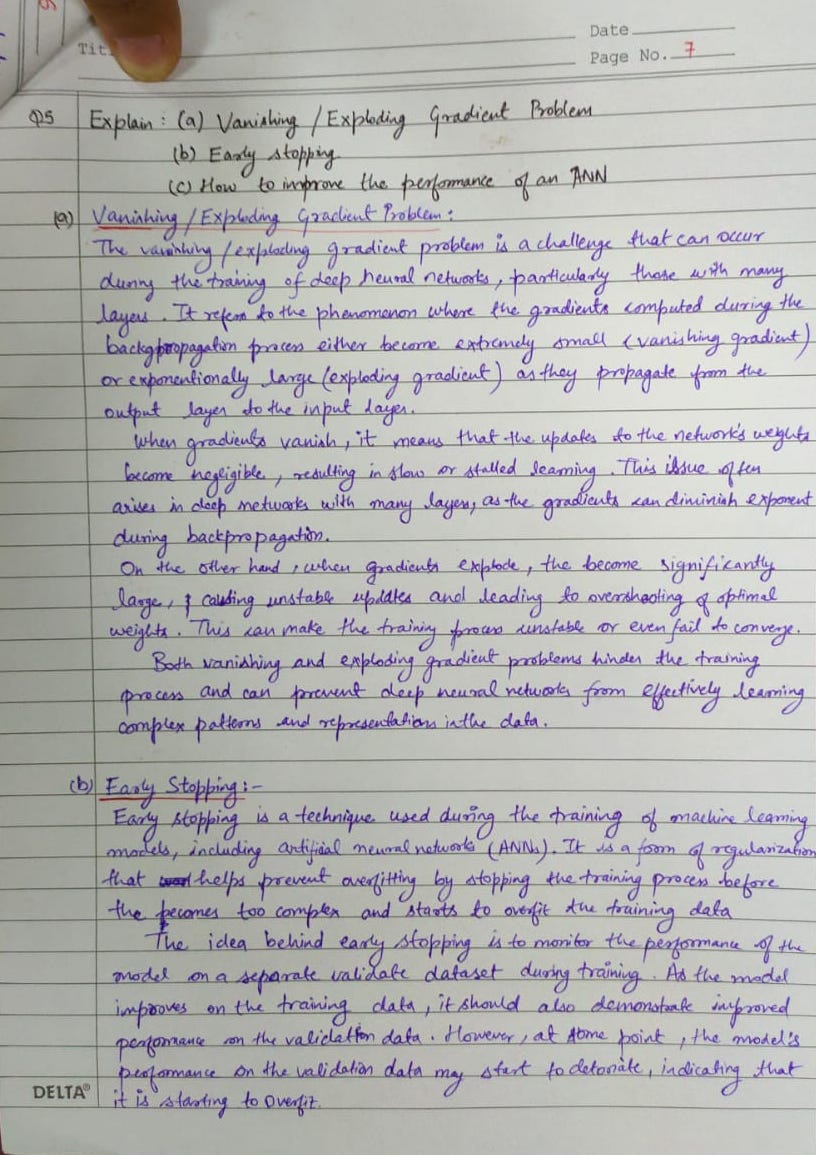 Tit
Date
Page No. 7
Q5 Explain : (a) Vanishing / Exploding Gradient Problem
(b) Early stopping
(c) How to improve the performance of an ANN
(a) Vanishing / Exploding Gradient Problem :
The vanishing / exploding gradient problem is a challenge that can occur
during the training of deep neural networks, particularly those with many
layers. It refers to the phenomenon where the gradients computed during the
backpropagation process either become extremely small (vanishing gradient)
or exponentionally large (exploding gradient) as they propagate from the
output layer to the input layer.
When gradients vanish, it means that the updates to the network's weights
become negligible, resulting in slow or stalled learning. This issue often
arises in deep networks with many layers, as the gradients can diminish exponent
during backpropagation.
On the other hand, when gradients explode, the become significantly
large, causing unstable updates and leading to overshooting of optimal
weights. This can make the training process unstable or even fail to converge.
Both vanishing and exploding gradient problems hinder the training
process and can prevent deep neural networks from effectively learning
complex patterns and representations in the data.
(b) Early Stopping :-
Early stopping is a technique used during the training of machine learning
models, including artificial neural networks (ANNs). It is a form of regularization
that helps prevent overfitting by stopping the training process before
the becomes too complex and starts to overfit the training data
The idea behind early stopping is to monitor the performance of the
model on a separate validate dataset during training. As the model
improves on the training data, it should also demonstrate improved
performance on the validation data. However, at some point, the model's
performance on the validation data may start to detoriate, indicating that
it is starting to overfit.
DELTA®